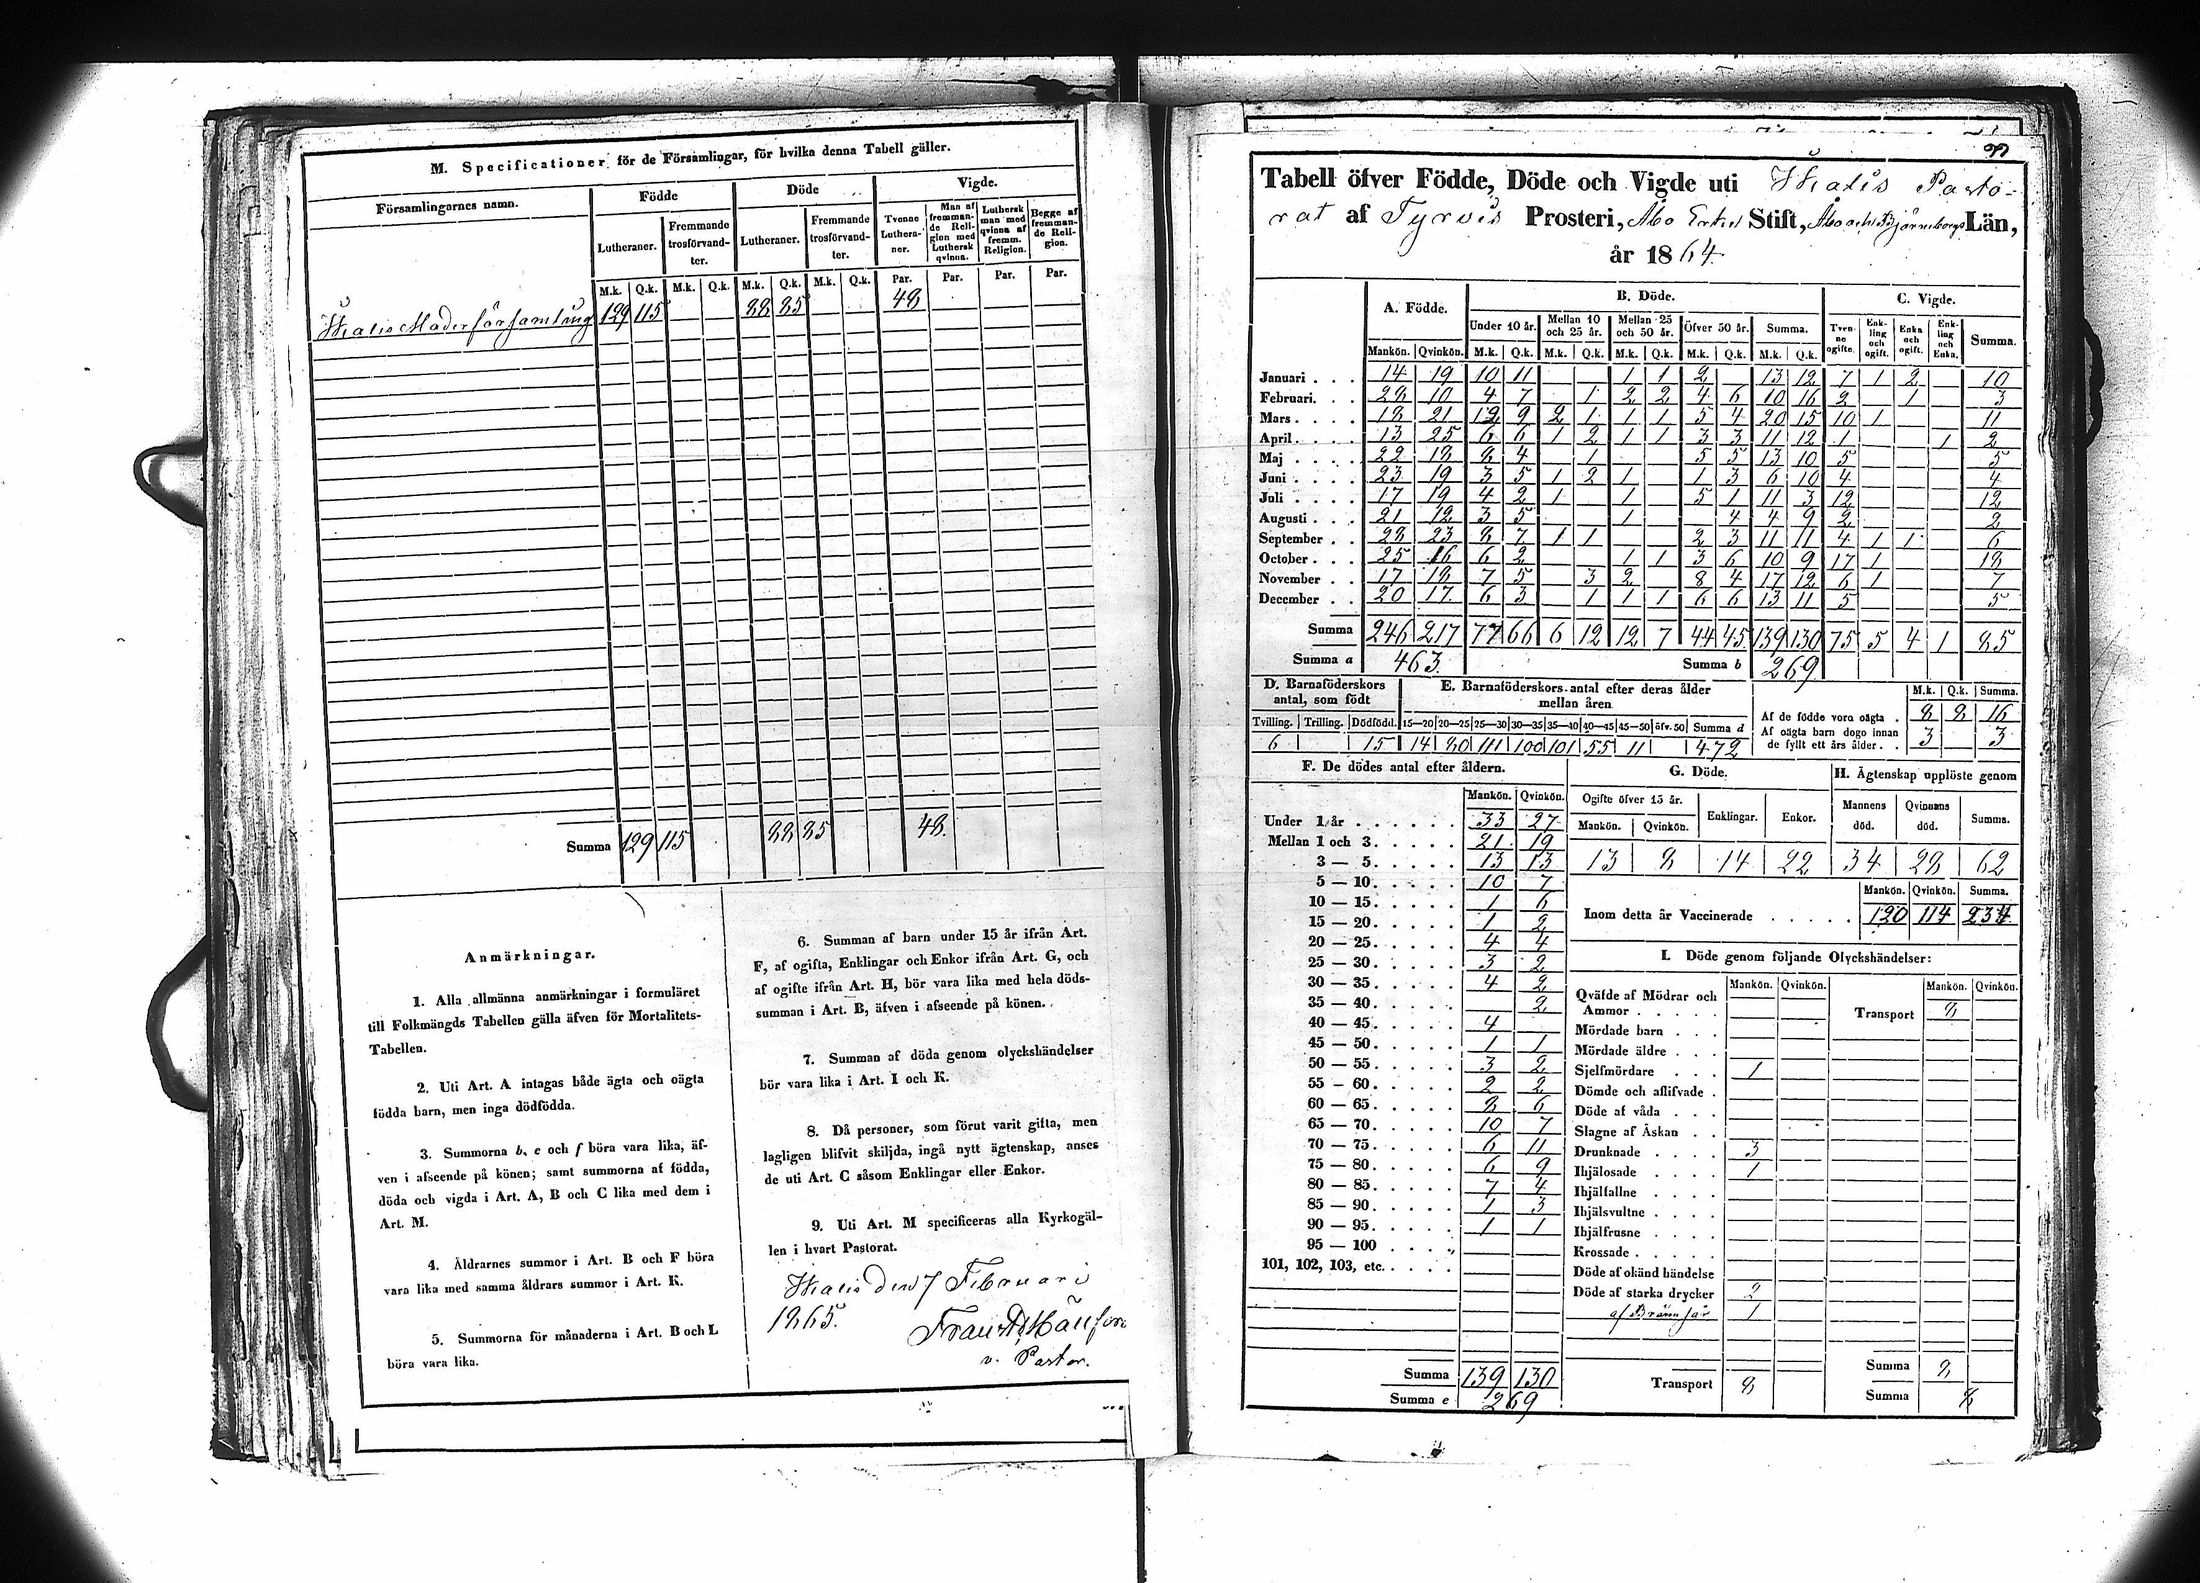 M. Specificationer för de Församlingar, för hvilka denna Tabell gäller.
Församlingarnes namn. Födde Döde Vigde.
Lutheraner. Fremmande trosförvandter. Lutheraner. Fremmande trosförvandter. Tvenne Lutheraner. Man af fremmande Religion med Luthersk qvinna. Luthersk man med qvinna af fremm. Religion. Begge af fremmande Religion.
M.k. Q.k. M.k. Q.k. M.k. Q.k. M.k. Q.k. Par. Par. Par. Par.
Ikalis Moderförsamling 129 115 88 85 48
Summa 129 115 88 85 48.
Anmärkningar.
1. Alla allmänna anmärkningar i formuläret
till Folkmängds Tabellen gälla äfven för Mortalitets-
Tabellen.
2. Uti Art. A intagas både ägta och oägta
födda barn, men inga dödfödda.
3. Summorna b, e och f böra vara lika, äf-
ven i afseende på könen; samt summorna af födda,
döda och vigda i Art. A, B och C lika med dem i
Art. M.
4. Åldrarnes summor i Art. B och F böra
vara lika med samma åldrars summor i Art. K.
5. Summorna för månaderna i Art. B och L
böra vara lika.
6. Summan af barn under 15 år ifrån Art.
F, af ogifta, Enklingar och Enkor ifrån Art. G, och
af ogifte ifrån Art. H, bör vara lika med hela döds-
summan i Art. B, äfven i afseende på könen.
7. Summan af döda genom olyckshändelser
bör vara lika i Art. I och K.
8. Då personer, som förut varit gifta, men
lagligen blifvit skiljda, ingå nytt ägtenskap, anses
de uti Art. C såsom Enklingar eller Enkor.
9. Uti Art. M specificeras alla Kyrkogäl-
len i hvart Pastorat.
Ikalis den 7 Februari
1865.
v. Pastor.
Tabell öfver Födde, Döde och Vigde uti Ikalis Pasto-
rat af Tyrvis Prosteri, Åbo Erke Stift, Åbo och Björneborgs Län,
år 1864
A. Födde. B. Döde. C. Vigde.
Under 10 år. Mellan 10 och 25 år. Mellan 25 och 50 år. Öfver 50 år. Summa. Tvenne ogifte. Enkling och ogift. Enka och ogift. Enkling och Enka. Summa.
Mankön. Qvinkön. M.k. Q.k. M.k. Q.k. M.k. Q.k. M.k. Q.k. M.k. Q.k.
Januari . . . 14 19 10 11 1 1 2 13 12 7 1 2 10
Februari. . . 28 10 4 7 1 2 2 4 6 10 16 2 1 3
Mars . . . . 18 21 12 9 2 1 1 1 5 4 20 15 10 1 11
April . . . . 13 25 6 6 1 2 1 1 3 3 11 12 1 1 2
Maj . . . . 22 18 8 4 1 5 5 13 10 5 5
Juni . . . . 23 19 3 5 1 2 1 1 3 6 10 4 4
Juli . . . . 17 19 4 2 1 1 5 1 11 3 12 12
Augusti . . . 21 12 3 5 1 4 4 9 2 2
September . . 28 23 8 7 1 1 2 3 11 11 4 1 1 6
October . . . 25 16 6 2 1 1 3 6 10 9 17 1 18
November . . 17 18 7 5 3 2 8 4 17 12 6 1 7
December . . 20 17 6 3 1 1 1 6 6 13 11 5 5
Summa 246 217 77 66 6 12 12 7 44 45 139 130 75 5 4 1 85
Summa a 463 Summa b 269
D. Barnaföderskors antal, som födt E. Barnaföderskors antal efter deras ålder mellan åren M.k. Q.k. Summa.
Tvilling. Trilling. Dödfödd. 15—20 20—25 25—30 30—35 35—40 40—45 45—50 öfv. 50 Summa d
6 15 14 80 111 100 101 55 11 472
Af de födde voro oägta . 8 8 16
Af oägta barn dogo innan de fyllt ett års ålder . . 3 3
F. De dödes antal efter åldern.
Mankön. Qvinkön.
Under 1 år . . . . . . 33 27
Mellan 1 och 3 . . . . . 21 19
3 — 5 . . . . . 13 13
5 — 10 . . . . . 10 7
10 — 15 . . . . . 1 6
15 — 20 . . . . . 1 2
20 — 25 . . . . . 4 4
25 — 30 . . . . . 3 2
30 — 35 . . . . . 4 2
35 — 40 . . . . . 2
40 — 45 . . . . . 4
45 — 50 . . . . . 1 1
50 — 55 . . . . . 3 2
55 — 60 . . . . . 2 2
60 — 65 . . . . . 8 6
65 — 70 . . . . . 10 7
70 — 75 . . . . . 6 11
75 — 80 . . . . . 6 9
80 — 85 . . . . . 7 4
85 — 90 . . . . . 1 3
90 — 95 . . . . . 1 1
95 — 100 . . . .
101, 102, 103, etc. . . . .
Summa 139 130
Summa e 269
G. Döde.
Ogifte öfver 15 år. Enklingar. Enkor.
Mankön. Qvinkön.
13 8 14 22
H. Ägtenskap upplöste genom
Mannens död. Qvinnans död. Summa.
34 28 62
Mankön. Qvinkön. Summa.
Inom detta år Vaccinerade . . . . . 120 114 234
I. Döde genom följande Olyckshändelser:
Mankön. Qvinkön. Mankön. Qvinkön.
Qväfde af Mödrar och Ammor . . . . . Transport 8
Mördade barn . . .
Mördade äldre . . .
Sjelfmördare . . . 1
Dömde och aflifvade .
Döde af våda . . .
Slagne af Åskan . .
Drunknade . . . . 3
Ihjälosade . . . . 1
Ihjälfallne . . . .
Ihjälsvultne . . . .
Ihjälfrusne . . . .
Krossade . . . . .
Döde af okänd händelse
Döde af starka drycker 2
af Brännsår 1
Transport 8 Summa 8
Summa 8